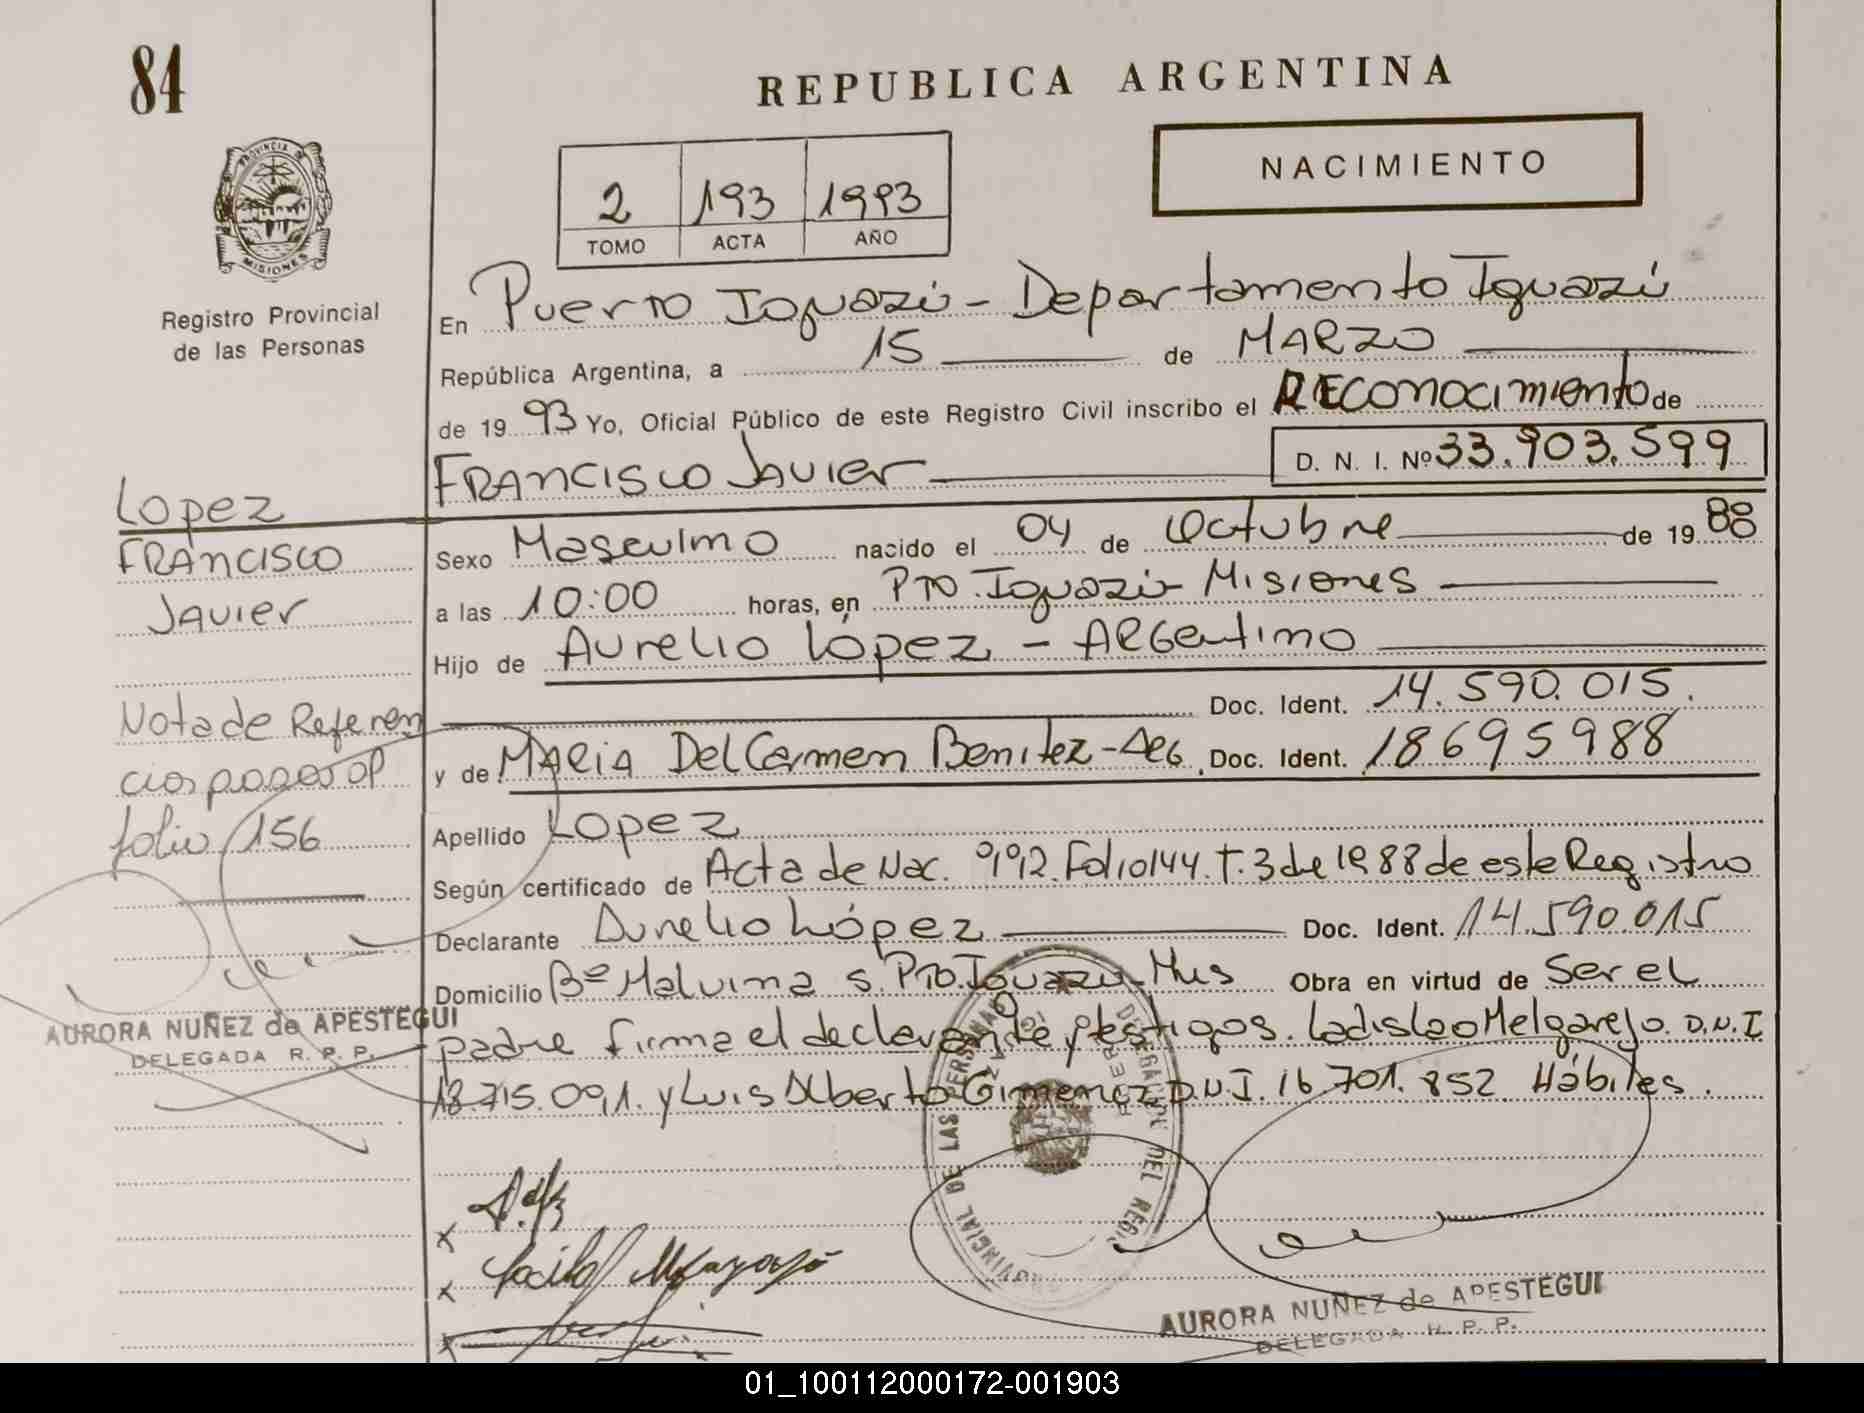 84
REPUBLICA ARGENTINA
NACIMIENTO
2 193 1993
TOMO ACTA AÑO
PROVINCIA DE
MISIONES
Registro Provincial
de las Personas
En Puerto Iguazú - Departamento Iguazú
República Argentina, a 15 de MARZO
de 19 93 Yo, Oficial Público de este Registro Civil inscribo el RECONOCIMIENTO de
FRANCISCO JAVIER D. N. I. Nº 33.903.599
Lopez
FRANCISCO
JAVIER
Sexo Masculino nacido el 04 de Octubre de 19 88
a las 10:00 horas, en Pto. Iguazú - Misiones
Hijo de Aurelio López - ARGentino
Doc. Ident. 14.590.015.
y de MARIA Del Carmen Benitez - ARG. Doc. Ident. 18695988
Nota de Referen
cias pasa al
folio 156
Apellido Lopez
Según certificado de Acta de Nac. 992. Folio 144. T. 3 de 1988 de este Registro
Declarante Aurelio López Doc. Ident. 14.590.015
Domicilio Bº Malvina s. Pto. Iguazu - Mnes Obra en virtud de Ser el
padre firma el declarante y testigos. Ladislao Melgarejo. D.N.I
18.715.091. y Luis Alberto Gimenez D.N.I. 16.701.852 Hábiles.
AURORA NUÑEZ de APESTEGUI
DELEGADA R. P. P.
DELEGACION DEL REGIS PROVINCIAL DE LAS PERSONAS
x
x
x
AURORA NUÑEZ de APESTEGUI
DELEGADA R. P. P.
01_100112000172-001903